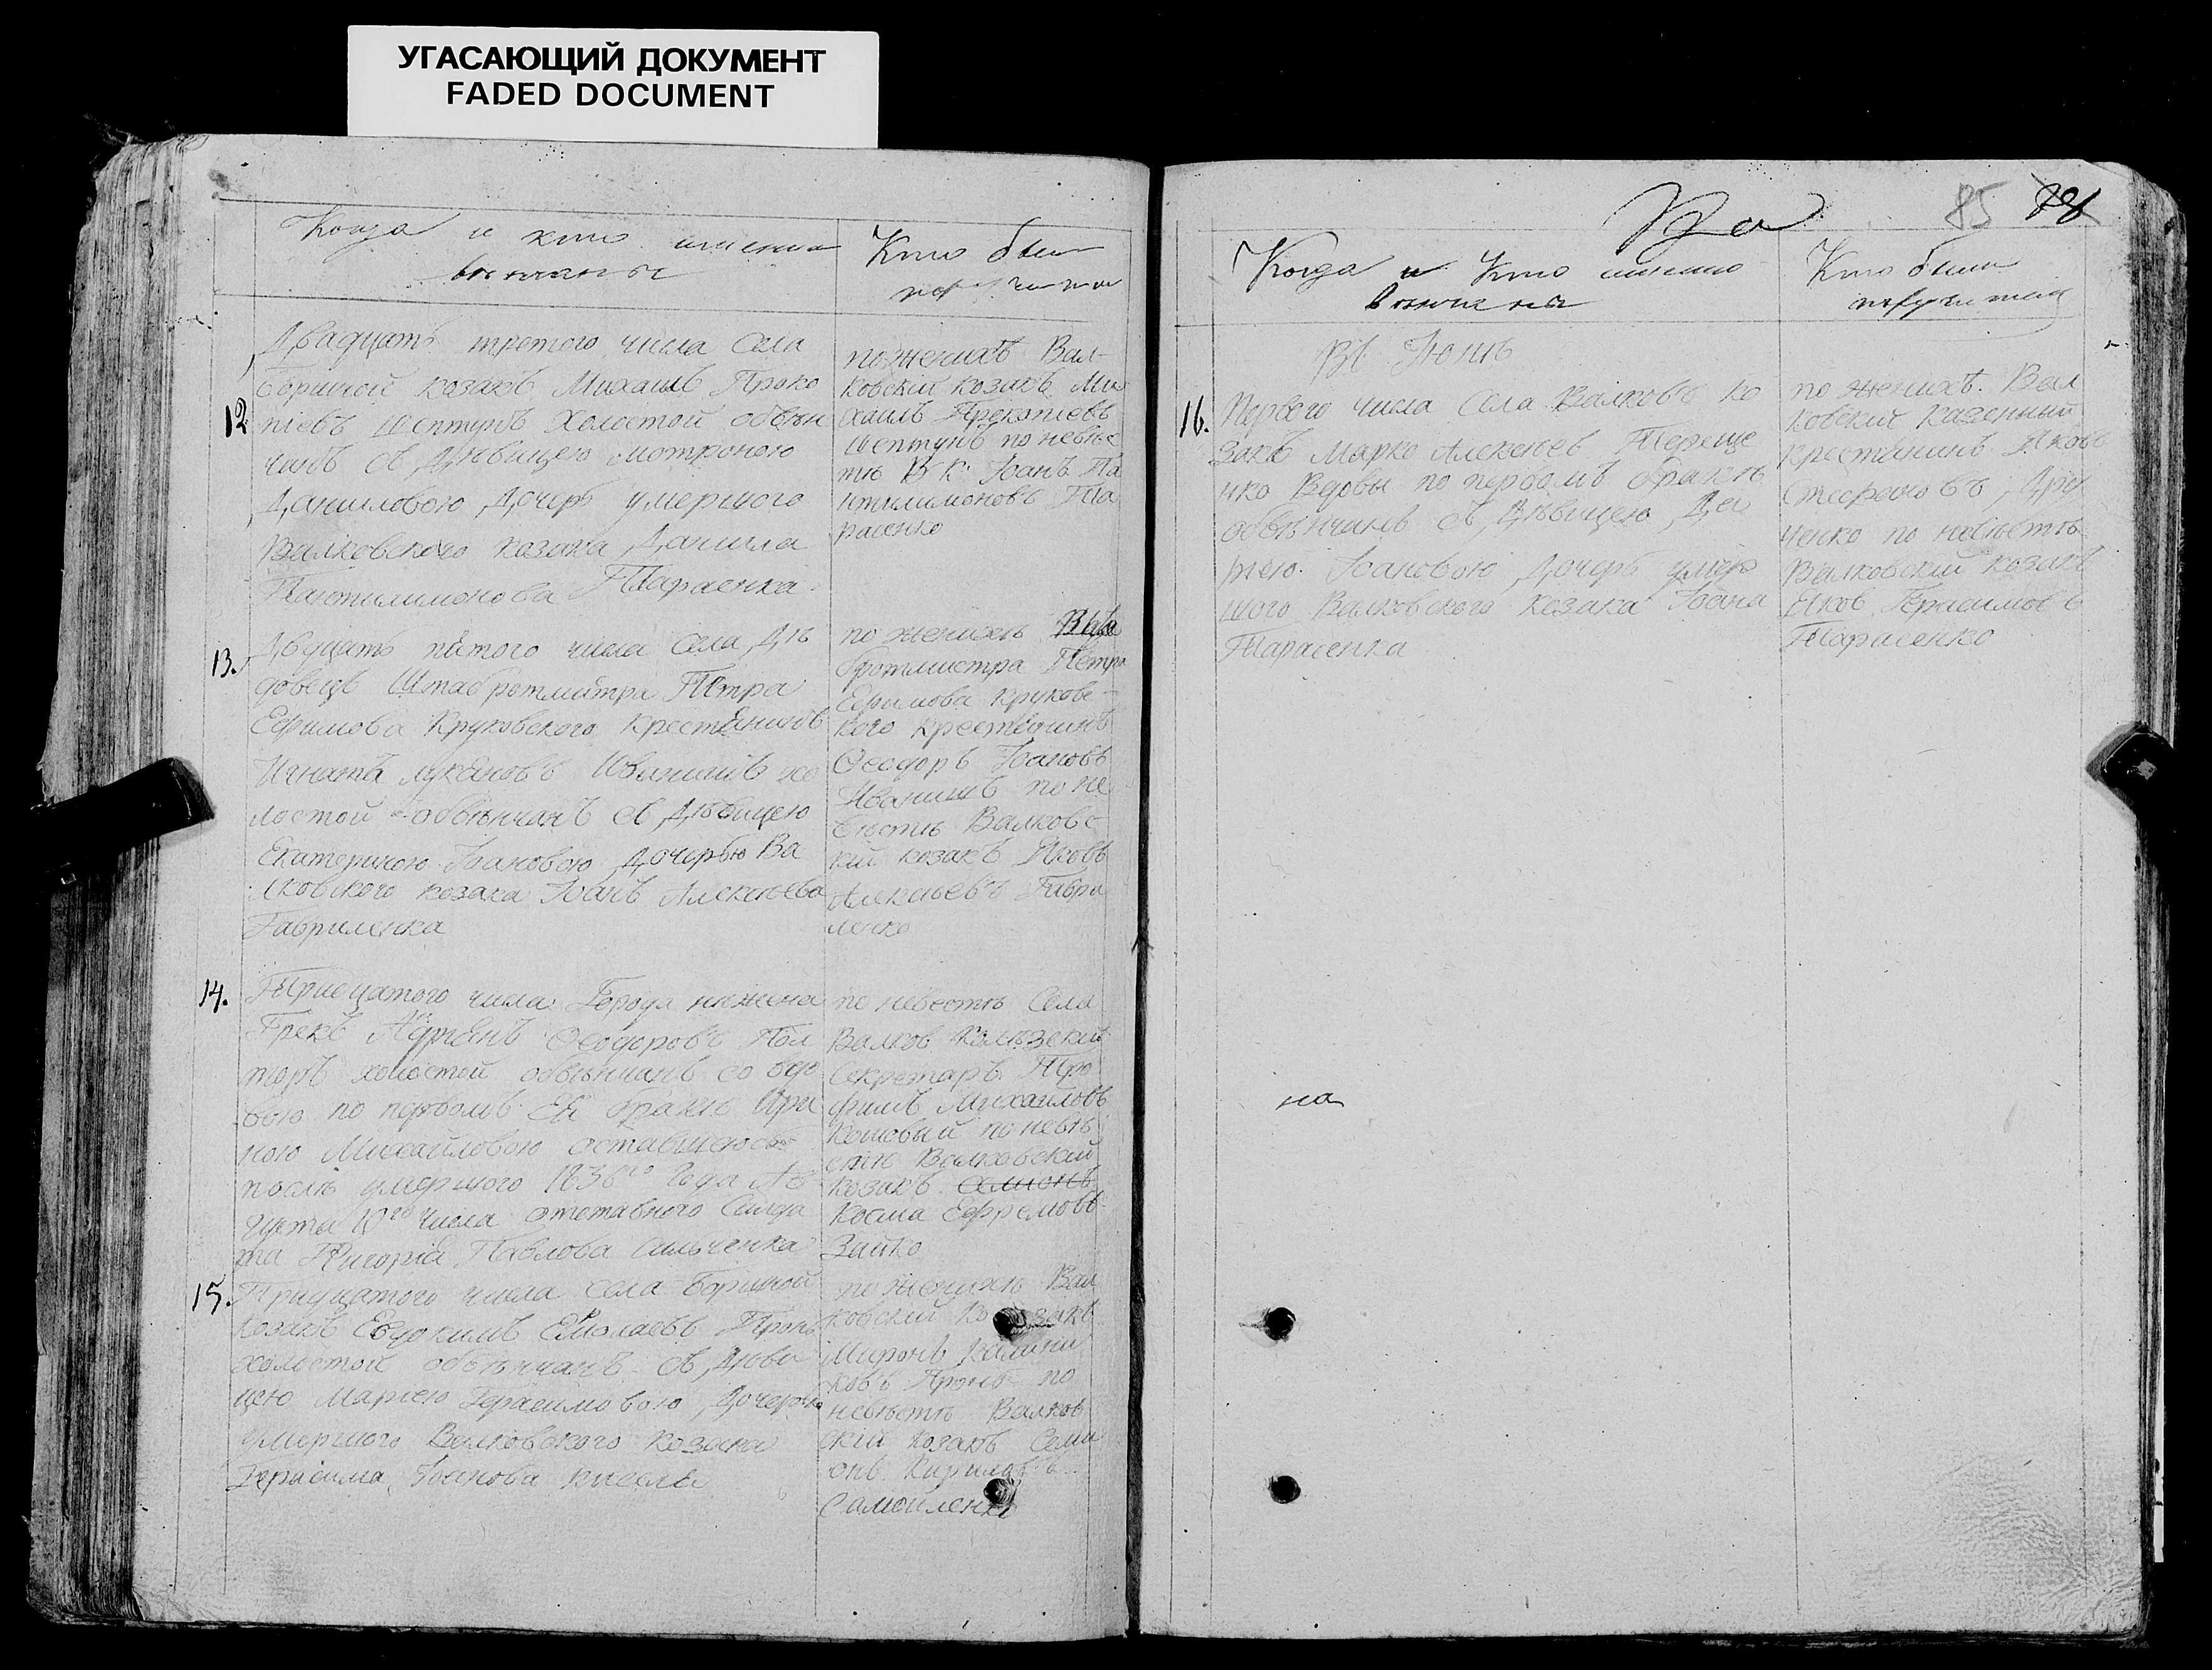 УГАСАЮЩИЙ ДОКУМЕНТ
FADED DOCUMENT
Когда и кто именно
венчаны
Кто были
поручители
Двадцать третого числа села
12 козакъ Михаилъ Проко
піевъ Шептунъ Холостой обвѣн
чанъ съ Дѣвицею Мотроною
Даниловою Дочерь умершого
Валковского козака Данила
Пантилимонова Тарасенка
по женихѣ Вал-
ковский козакъ Ми
хаилъ Прокопіевъ
Шептунъ по невѣс
тѣ В К Іоанъ Па
нтилимоновъ Та
расенко
13. Двуцать пятого числа села Дѣ
довецъ Штабротмистра Петра
Ефимова Круковского крестянинъ
Игнатъ Лукяновъ хо
лостой обвѣнчанъ съ Дѣвицею
Екатериною Іоановою Дочерью Ва
лковского козака Іоанъ Алексѣева
Гавриленка
по женихѣ
бротмистра Петра
Ефимова Круковс-
кого крестянинъ
Ѳеодоръ Іоановъ
по не
вѣстѣ Валковс
кій козакъ Яковъ
Алексѣевъ Гаври
ленко
14. Трисцатого числа Города нѣжена
Грекъ Ѳеодоровъ Пол
торъ холостой обвѣнчанъ со вдо
вою по первомъ Ея бракѣ Ири
ною Михайловою оставшеюсь
послѣ умершого 1836го Года Ав
густа 10го числа отставного Салда
та Григорія Павлова Сильченка
по невестѣ Села
Валков
Секретаръ Тро
фимъ Михаиловъ
по невѣ
стѣ Валковский
козакъ Семионъ
Косма Ефремовъ
Зайко
15. Трицатого числа села
козакъ Евдокимъ Пронь
холостой обвѣнчанъ съ Дѣви
цею Маріею Герасимовою Дочерью
умершого Валковского козака
Герасима Іоанова Киселя
по женихѣ Вал
ковский козакъ
Миронъ
Пронь по
невѣстѣ Валков
ский козакъ Семи
онъ Кириловъ
Самойленко
Ра
85
Когда и Кто именно
венчаны
Кто были
поручители
Вь Іюнѣ
16. Первого числа Села Валковъ ко
закъ Марко Алексѣев Тереще
нко Вдовы по первомъ бракѣ
обвѣнчанъ съ Дѣвицею Да
ріею Іоановою Дочерь умер
шого Валковского козака Іоана
Тарасенка
по женихѣ Вал
ковский казенный
крестянинъ Яковъ
ченко по невѣстѣ
Валковский козакъ
Яков Герасимовъ
Тарасенко
на